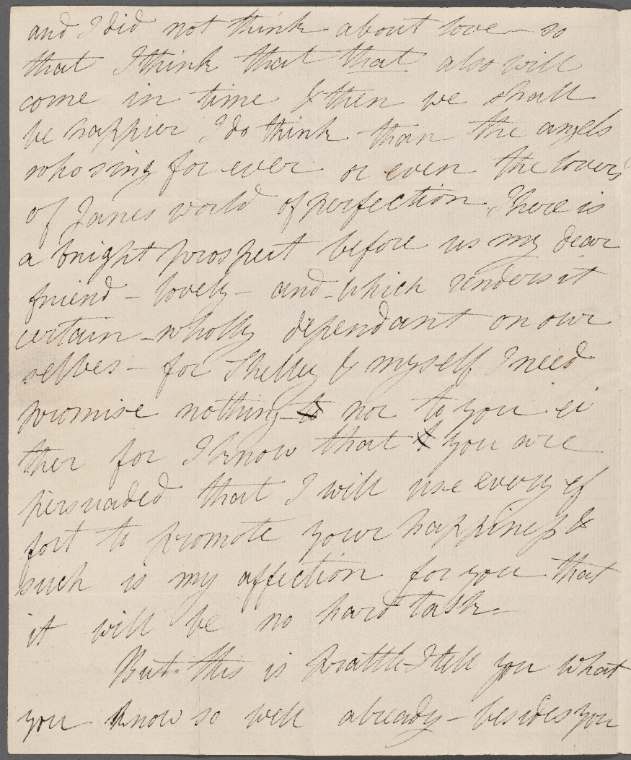 and I did not think about love – so
that I think that that also will
come in time & then we shall
be happier I do think than the angels
who sing for ever or even the lovers
of Janes world of perfection. There is
a bright prospect before us my dear
friend – lovely – and – which renders it
certain – wholly dependant on our
selves – for Shelley & myself I need
promise nothing – nor to you ei
ther for I know that you are
persuaded that I will use every ef
fort to promote your happiness &
such is my affection for you that
it will be no hard task –
But this is prattle I tell you what
you know so well already – besides you